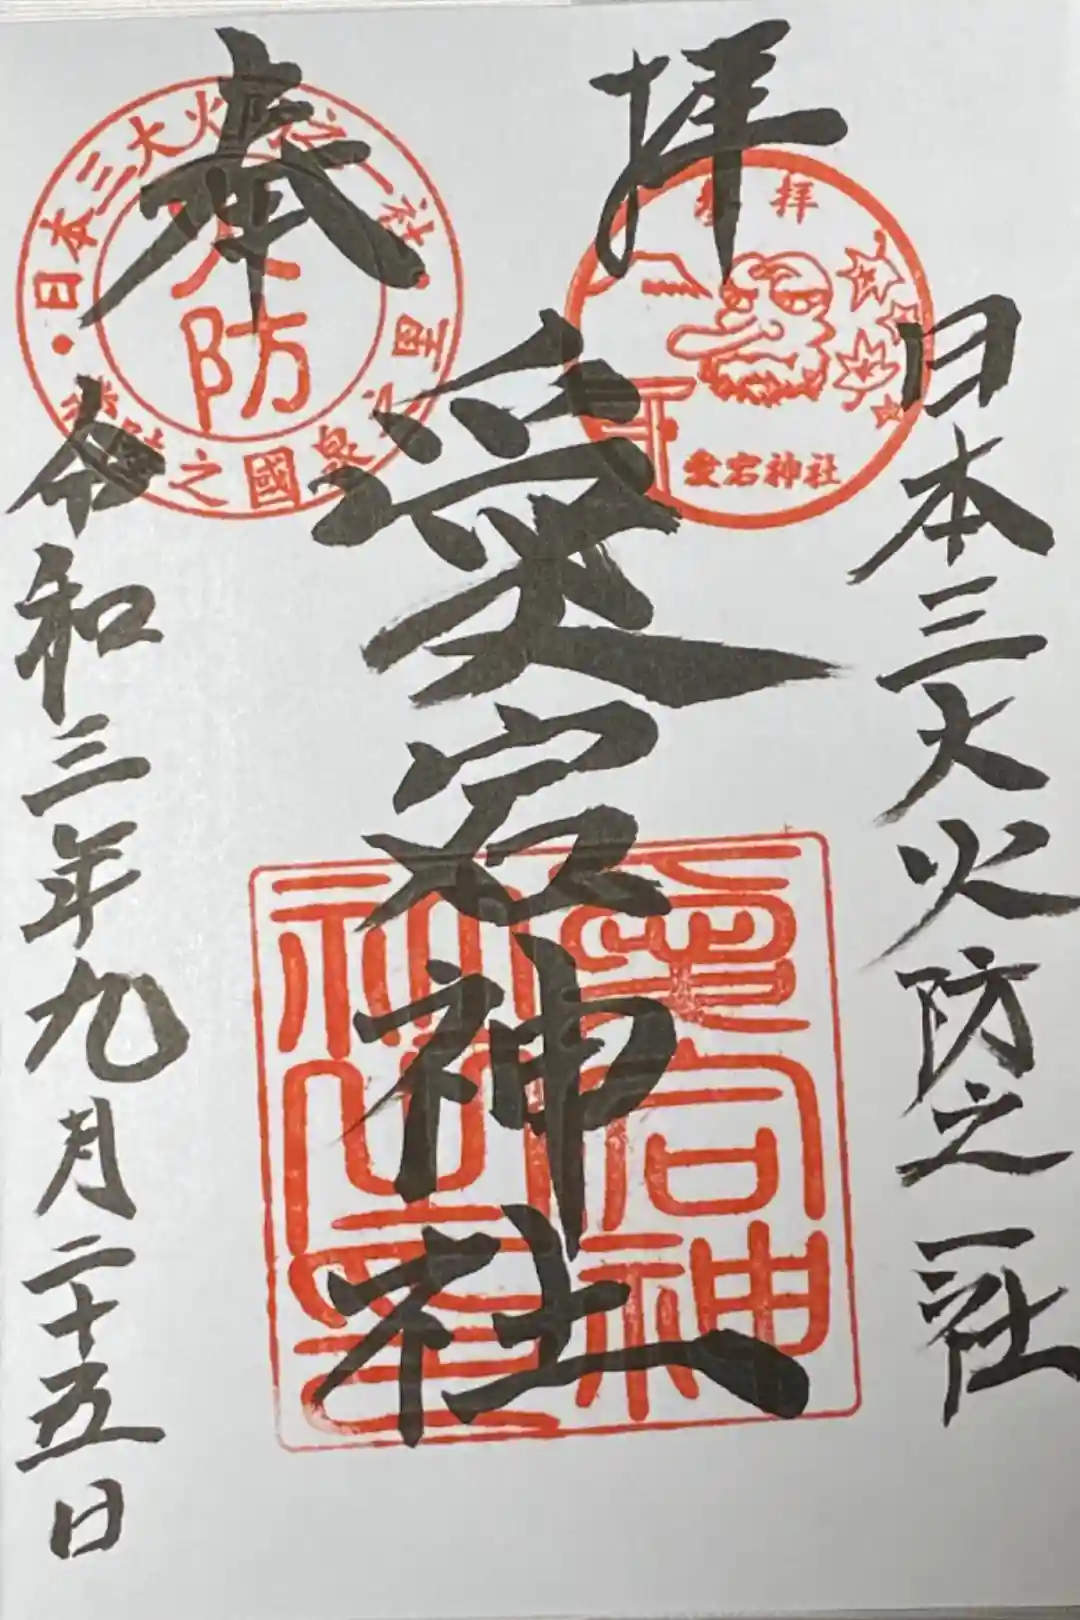 奉拝
日本三大火防之一社
愛宕神社
令和三年九月二十五日
日本三大火防之一社
火防
國之
拝
愛宕神社
愛宕神
社之印